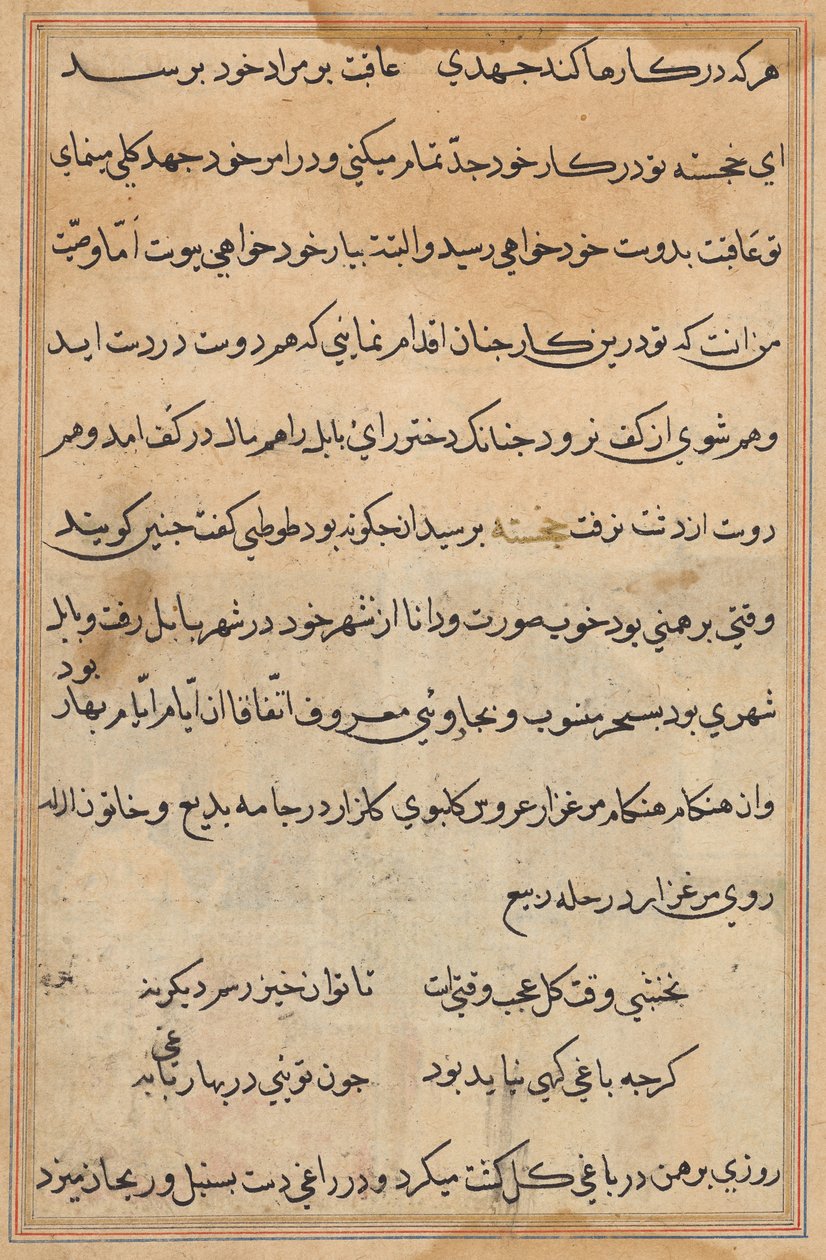 هر که در کارها کند جهدی عاقبت بر مراد خود برسد
ای خجسته تو در کار خود جدّ تمام میکنی و در امر خود جهد کلی مینمای
تو عاقبت بدوست خود خواهی رسید و البته بیار خود خواهی پیوست اَمّا وصیّت
من انست که تو درین کار جنان اقدام نمایئی که هم دوست در دست اید
و هم شوی از کف نرود جنانک دختر رایٔ بابل را هم مال در کف امد و هم
دوست از دست نرفت خجسته برسید ان جکونه بود طوطی کفت جنین کویند
وقتی برهمنی بود خوب صورت و دانا از شهر خود در شهر بابل رفت و بابل
شهری بود بسحر منسوب و بجادوئی معروف اتّفاقا ان ایّام ایّام بهار بود
و ان هنکام هنکام مرغزار عروس کلبوی کلزار در جامه بدیع و خاتون لاله
روی مرغزار در حله ربیع
نخشبی وقت کل عجب وقتی است تا توان خیز رسم دیکر نه
کرجه باغی کهی نباید بود جون توئی در بهار باغی به
روزی برهمن در باغی کل کشت میکرد و در راغی دست بسنبل و ریحان میزد